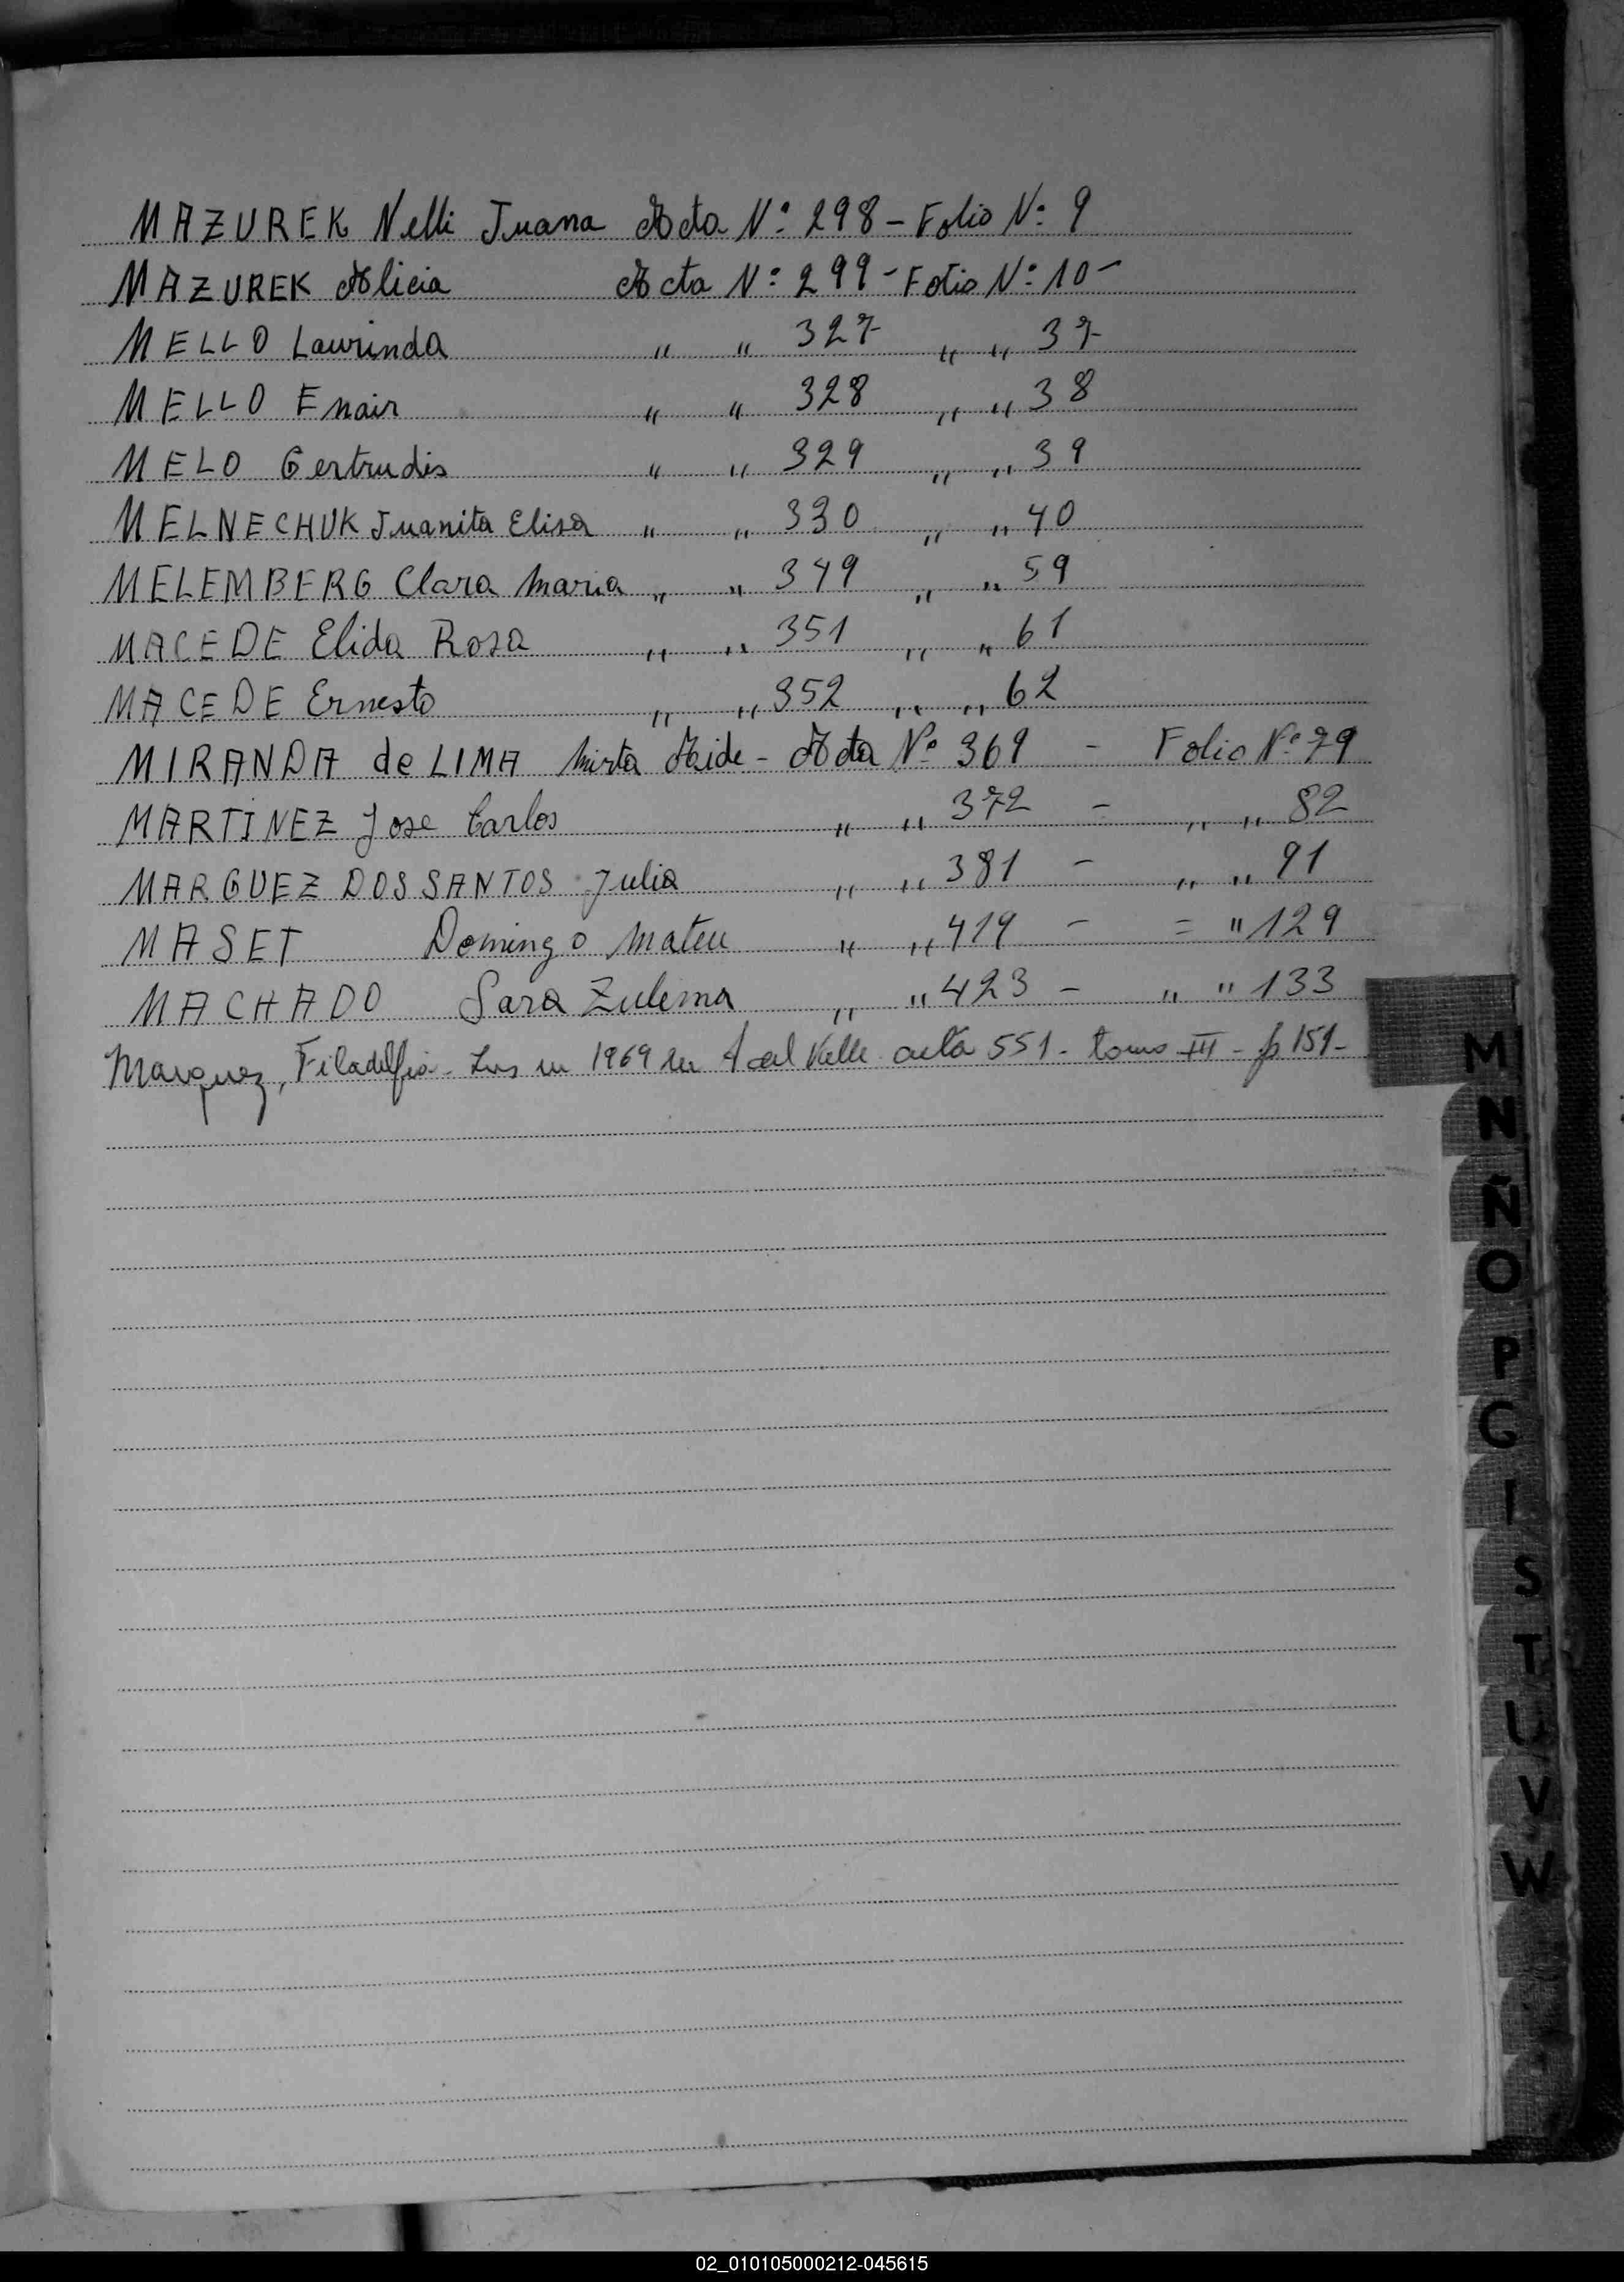 MAZUREK Nelli Juana Acta Nº 298 - Folio Nº 9
MAZUREK Alicia Acta Nº 299 - Folio Nº 10 -
MELLO Laurinda " " 327 " " 37
MELLO Enair " " 328 " " 38
MELO Gertrudis " " 329 " " 39
MELNECHUK Juanita Elisa " " 330 " " 40
MELEMBERG Clara Maria " " 349 " " 59
MACEDE Elida Rosa " " 351 " " 61
MACEDE Ernesto " " 352 " " 62
MIRANDA de LIMA Mirta Aide - Acta Nº 369 - Folio Nº 79
MARTINEZ Jose Carlos " " 372 - " " 82
MARGUEZ DOS SANTOS Julia " " 381 - " " 91
MASET Domingo Mateu " " 419 - = " 129
MACHADO Sara Zulema " " 423 - " " 133
Marquez, Filadelfia - Ins en 1969 en A del Valle acta 551 - tomo III - f 151 -
M
N
Ñ
O
P
S
T
U
V
W
02_010105000212-045615